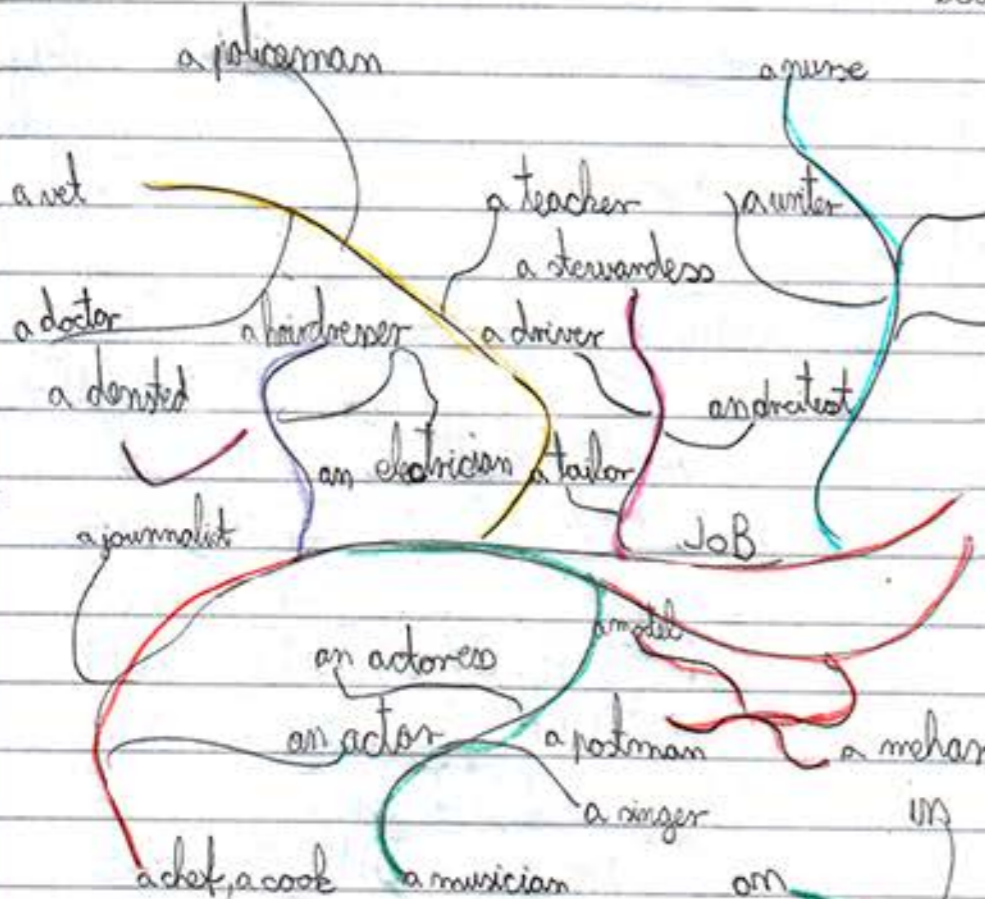 a policeman
a nurse
a vet
a teacher
a writer
a stewardess
a doctor
a hairdresser
a driver
a densted
an electrician
a tailor
a journnalist
JoB
a motel
an actoress
an actor
a postman
a mehan
a singer
in
a chef, a cook
a musician
on